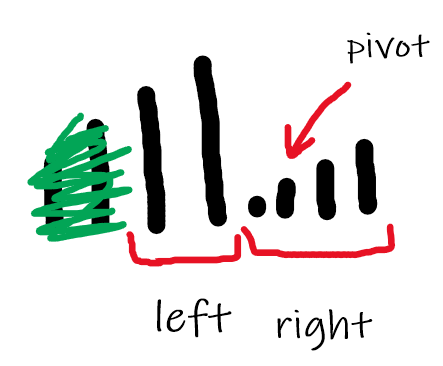 pivot
left
right